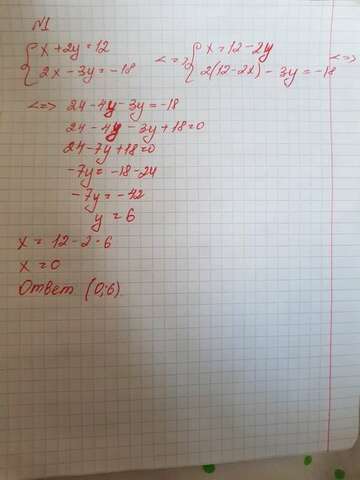 №1
{ x + 2y = 12 <=> { x = 12 - 2y <=>
2x - 3y = -18 2(12 - 2x) - 3y = -18
<=> 24 - 4y - 3y = -18
24 - 4y - 3y + 18 = 0
24 - 7y + 18 = 0
-7y = -18 - 24
-7y = -42
y = 6
x = 12 - 2 · 6
x = 0
Ответ (0; 6)